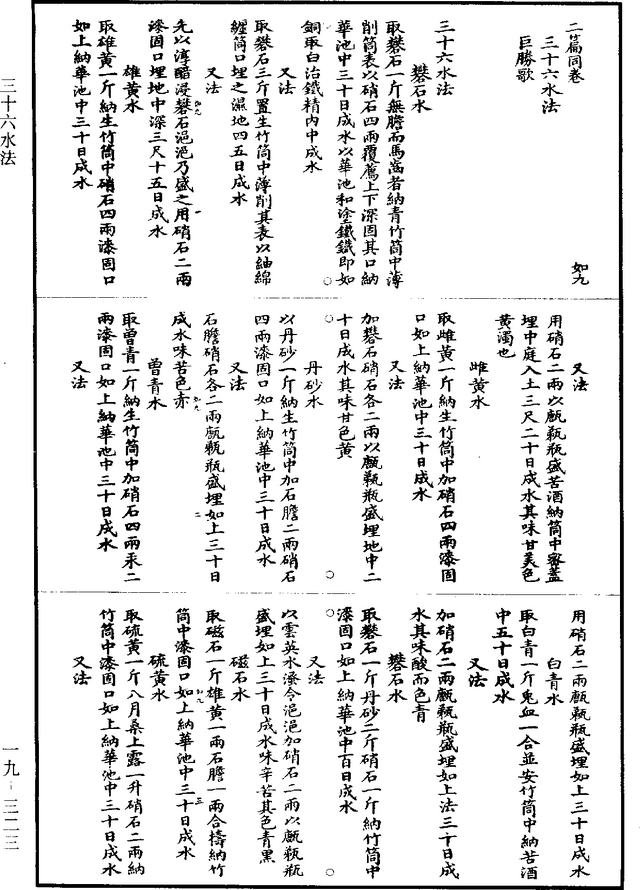 二篇同卷
三十六水法　如九
巨勝歌
三十六水法
礬石水
取礬石一斤無膽而馬齒者納青竹筒中薄
削筒表以硝石四兩覆薦上下深固其口納
華池中三十日成水以華池和塗鐵鐵即如
銅取白治鐵精內中成水
又法
取礬石三斤置生竹筒中薄削其表以紬綿
纏筒口埋之濕地四五日成水
又法
先以淳醋浸礬石浥浥乃盛之用硝石二兩
漆固口埋地中深三尺十五日成水
雄黃水
取雄黃一斤納生竹筒中硝石四兩漆固口
如上納華池中三十日成水
又法
用硝石二兩以甒甀瓶盛苦酒納筒中密蓋
埋中庭入土三尺二十日成水其味甘美色
黃濁也
雌黃水
取雌黃一斤納生竹筒中加硝石四兩漆固
口如上納華池中三十日成水
又法
加礬石硝石各二兩以甒甀瓶盛埋地中二
十日成水其味甘色黃
丹砂水
以丹砂一斤納生竹筒中加石膽二兩硝石
四兩漆固口如上納華池中三十日成水
又法
石膽硝石各二兩甒甀瓶盛埋如上三十日
成水味苦色赤
曾青水
取曾青一斤納生竹筒中加硝石四兩汞二
兩漆固口如上納華池中三十日成水
又法
用硝石二兩甒甀瓶盛埋如上三十日成水
白青水
取白青一斤兔血一合並安竹筒中納苦酒
中五十日成水
又法
加硝石二兩甒甀瓶盛埋如上法三十日成
水其味酸而色青
礬石水
取礬石一斤丹砂二斤硝石一斤納竹筒中
漆固口如上納華池中百日成水
又法
以雲英水潑令浥浥加硝石二兩以甒甀瓶
盛埋如上三十日成水味辛苦其色青黑
磁石水
取磁石一斤雄黃一兩石膽一兩合擣納竹
筒中漆固口如上納華池中三十日成水
硫黃水
取硫黃一斤八月桑上露一升硝石二兩納
竹筒中漆固口如上納華池中三十日成水
又法
三十六水法
一九－三二三